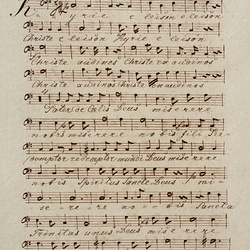 Kyrie eleison eleison
Christe eleison Kyrie eleison
Christe audi nos Christe exaudi nos
Christe audi nos Christe exaudi nos
Pater de Celis Deus miserere
nobis miserere nobis fili Re-
demptor redemptor mundi Deus miserere
nobis Spiritus Sancte Deus mi-
serere nobis Sancta
Trinitas unus Deus miserere